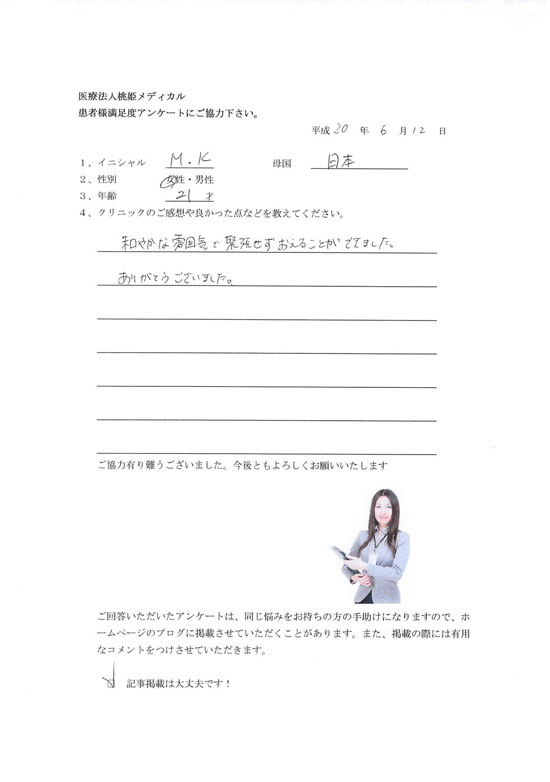 医療法人桃姫メディカル
患者様満足度アンケートにご協力下さい。
平成 30 年 6 月 12 日
1、イニシャル M.K 母国 日本
2、性別 女性・男性
3、年齢 21 才
4、クリニックのご感想や良かった点などを教えてください。
和やかな雰囲気で緊張せずおえることがでてました。
ありがとうございました。
ご協力有り難うございました。今後ともよろしくお願いいたします
ご回答いただいたアンケートは、同じ悩みをお持ちの方の手助けになりますので、ホ
ームページのブログに掲載させていただくことがあります。また、掲載の際には有用
なコメントをつけさせていただきます。
記事掲載は大丈夫です！